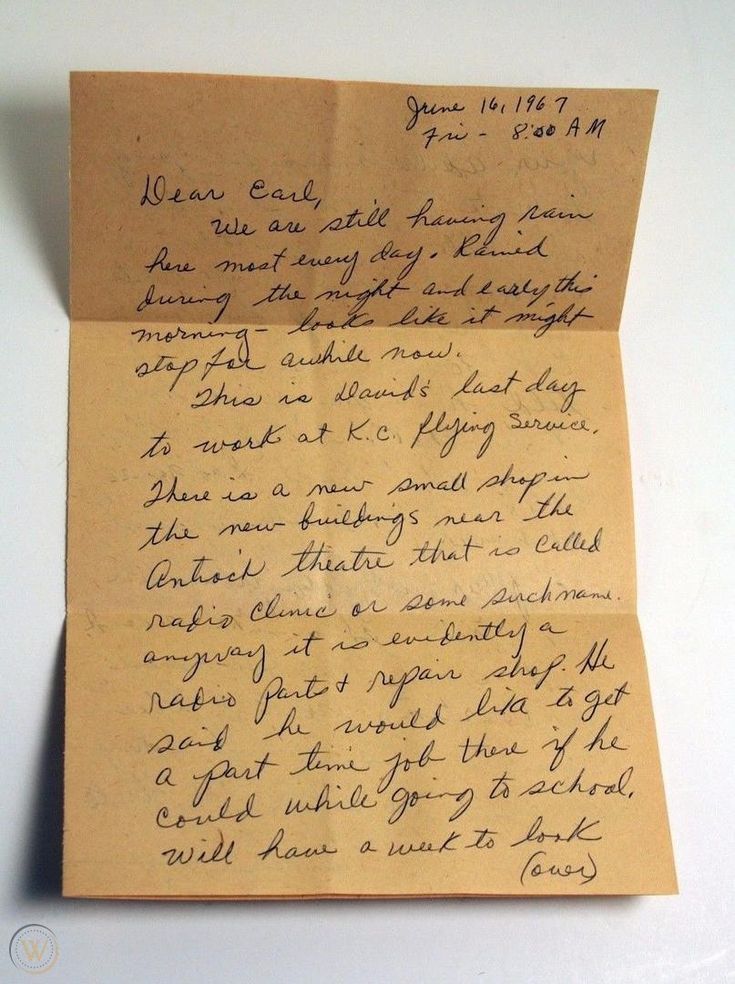 June 16, 1967
Fri - 8:00 AM
Dear Carl,
We are still having rain
here most every day. Rained
during the night and early this
morning - looks like it might
stop for awhile now.
This is David's last day
to work at K.C. flying Service.
There is a new small shop in
the new buildings near the
Antioch theatre that is called
radio clinic or some such name.
anyway it is evidently a
radio parts & repair shop. He
said he would like to get
a part time job there if he
could while going to school.
Will have a week to look
(over)
W